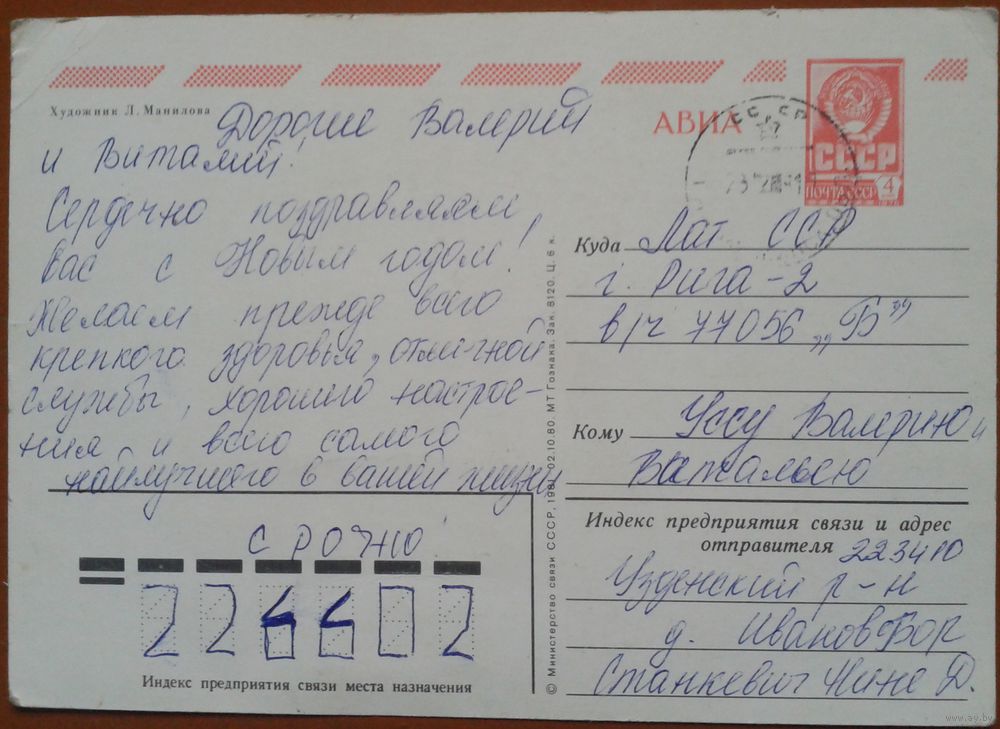 Художник Л. Манилова
Дорогие Валерий
и Виталий!
Сердечно поздравляем
вас с Новым годом!
Желаем прежде всего
крепкого здоровья, отличной
службы, хорошего настрое-
ния и всего самого
наилучшего в вашей жизни
СРОЧНО!
Индекс предприятия связи места назначения
© Министерство связи СССР, 1981. 02.10.80. МТ Гознака. Зак. 8120. Ц. 6 к.
АВИА
СССР
ПОЧТА СССР 4
Куда Лат ССР
г. Рига-2
в/ч 77056 „Б"
Кому Уссу Валерию и
Витальею
Индекс предприятия связи и адрес
отправителя 223410
Узденский р-н
д. Иванов Бор
Станкевич Нине Д.
www.ay.by